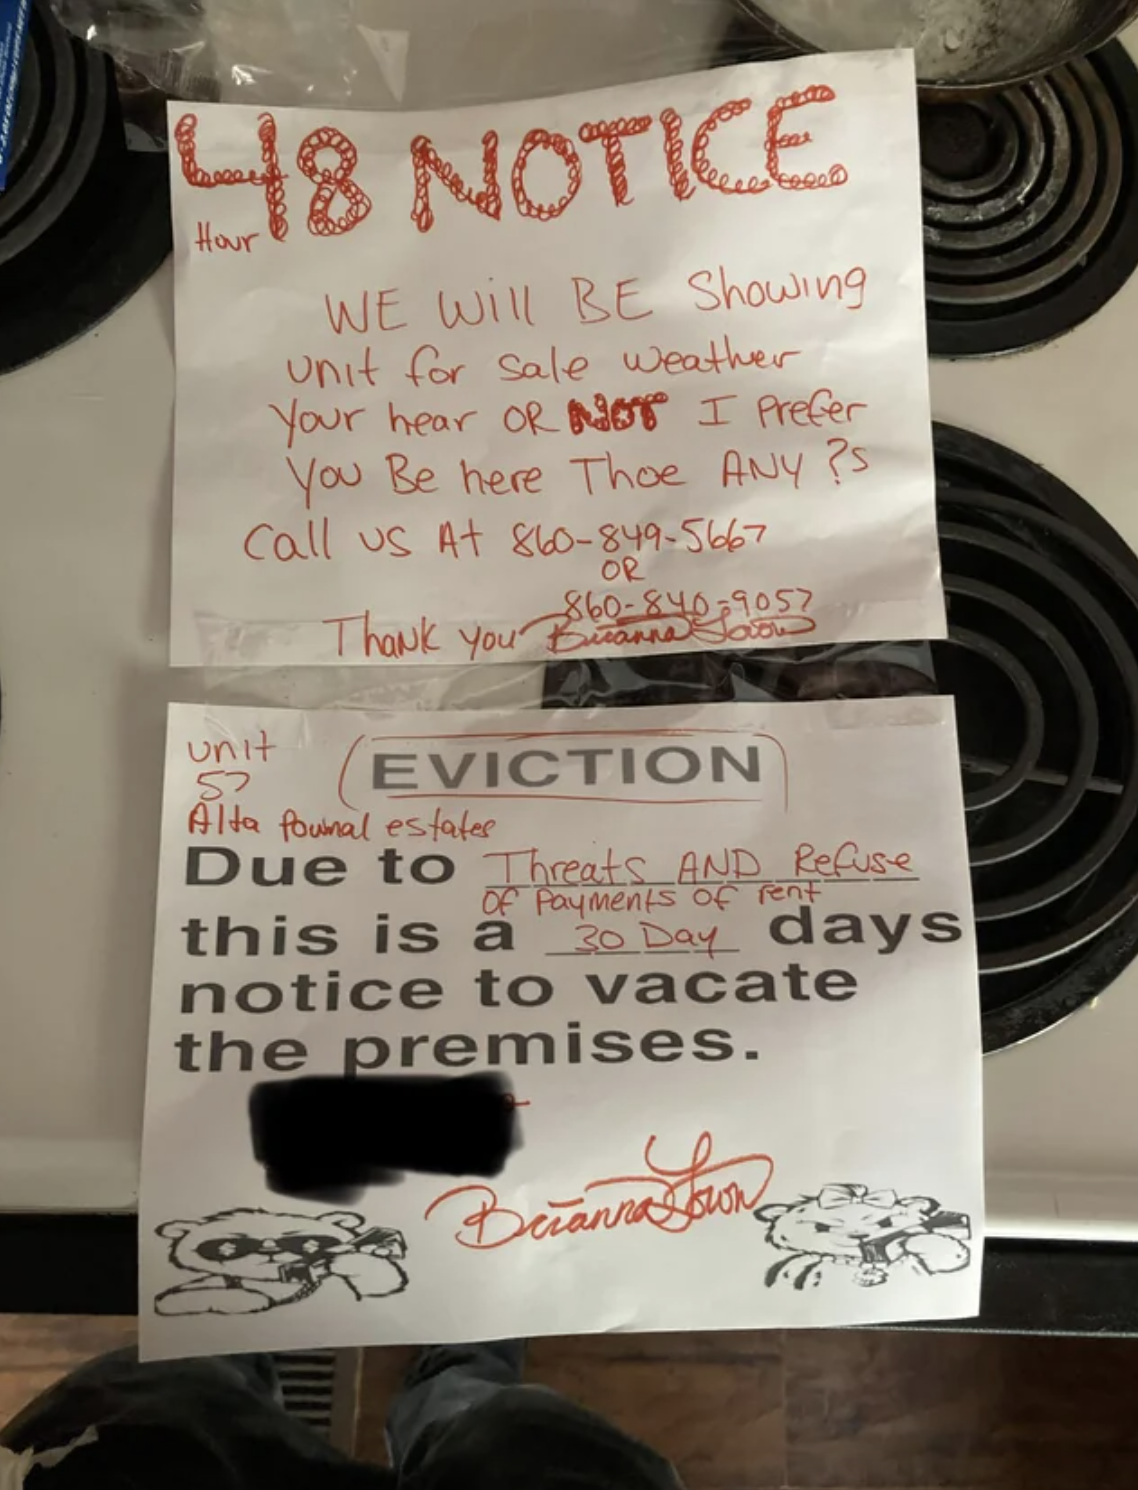 48 NOTICE
Hour
WE Will BE Showing
unit for sale weather
your hear OR NOT I prefer
you Be here Thoe ANY ?s
Call us At 860-849-5667
OR
860-840-9057
Thank you Brianna
unit
57
EVICTION
Alta Pownal estates
Due to Threats AND Refuse
of Payments of rent
this is a 30 Day days
notice to vacate
the premises.
Brianna